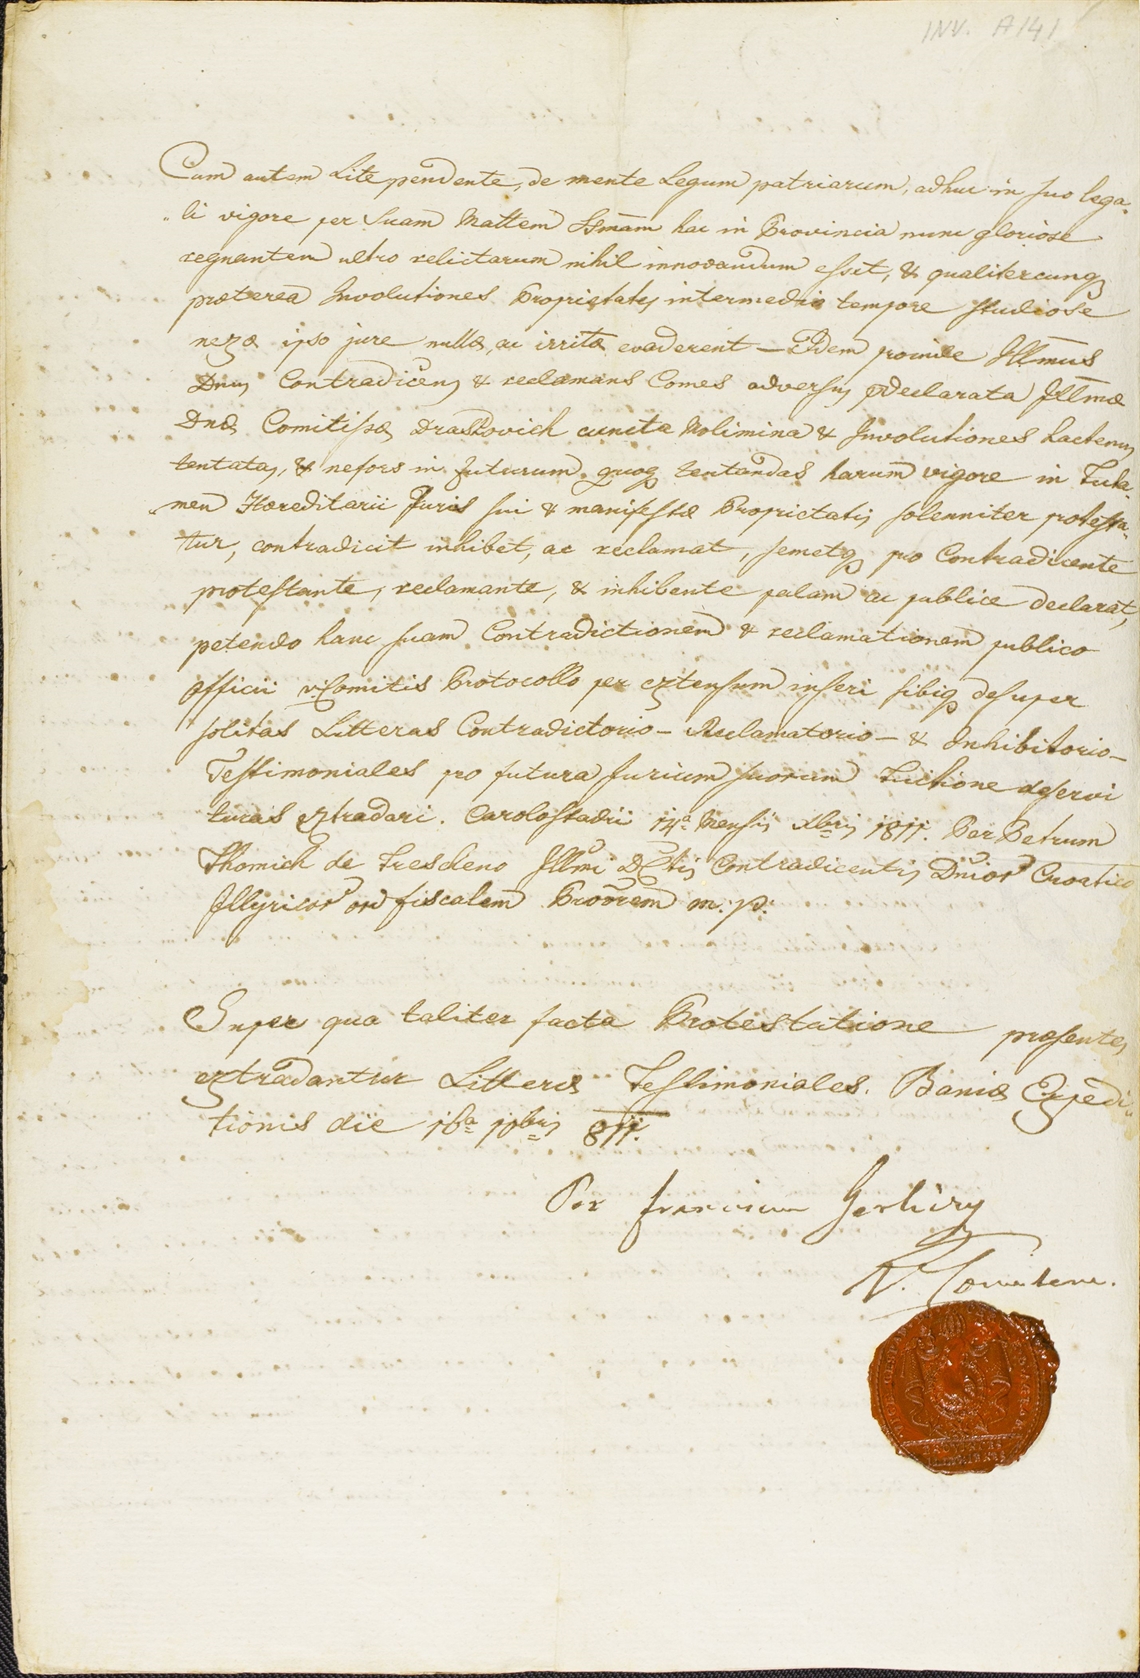 INV. A 141
Cum autem Lite pendente, de mente Legum patriarum, adhuc in suo lega-
li vigore per Suam Mattem Ssmam hac in Provincia nunc gloriose
regnantem ultro relictarum nihil innovandum esset, & qualitercunq
præterea Involutiones Proprietatis intermedio tempore studiose
nexæ ipso jure nullæ, ac irritæ evaderent — Idem proinde Illmus
Dnus Contradicens & reclamans Comes adversus prædeclarata Illmæ
Dnæ Comitissæ Draskovich cuncta Molimina & Involutiones hactenus
tentatas, & nefors in futurum quoq tentandas harum vigore in Tuta-
men Hæreditarii Juris sui & manifestæ Proprietatis solenniter protesta-
tur, contradicit inhibet, ac reclamat, semetq pro Contradicente
protestante, reclamante, & inhibente palam ac publice declarat,
petendo hanc suam Contradictionem & reclamationem publico
Officii vComitis Protocollo per extensum inseri sibiq desuper
solitas Litteras Contradictorio- Reclamatorio- & Inhibitorio-
Testimoniales pro futura Jurium suorum tuitione deservi
turas extradari. Carolostadii 14a Mensis Xbris 1811. Per Petrum
Thomich de Illmi Dtis Contradicentis Dnior Croatico
Illyricor ord fiscalem Procrem m. p.
Super qua taliter facta Protestatione præsentes
extradantur Litteræ Testimoniales. Baniæ Expedi-
tionis die 16a 811.
Per Franciscum
V. Comitem.